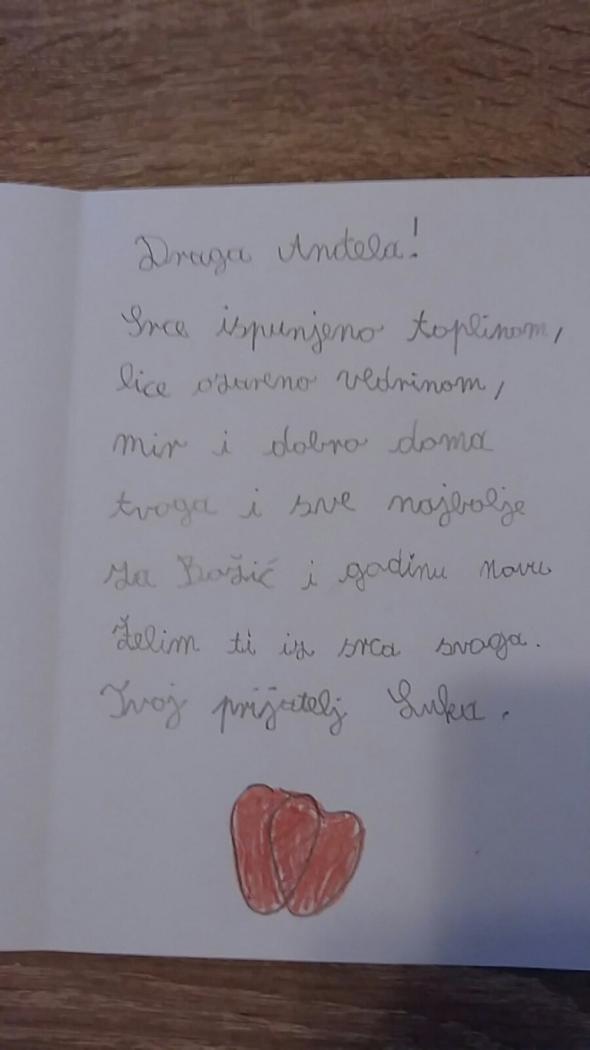 Draga Anđela!
Srce ispunjeno toplinom,
lice ozareno vedrinom,
mir i dobro doma
tvoga i sve najbolje
za Božić i godinu novu
želim ti iz srca svoga.
Tvoj prijatelj Luka.